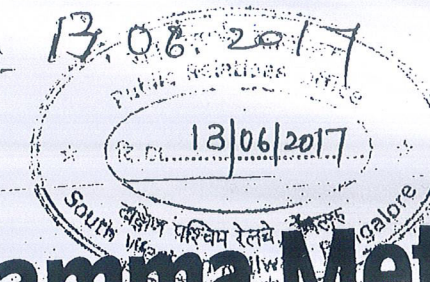 13.06.2017
Public Relations Office
दि. Dt. 13/06/2017
दक्षिण पश्चिम रेलवे
South galore
amma Met